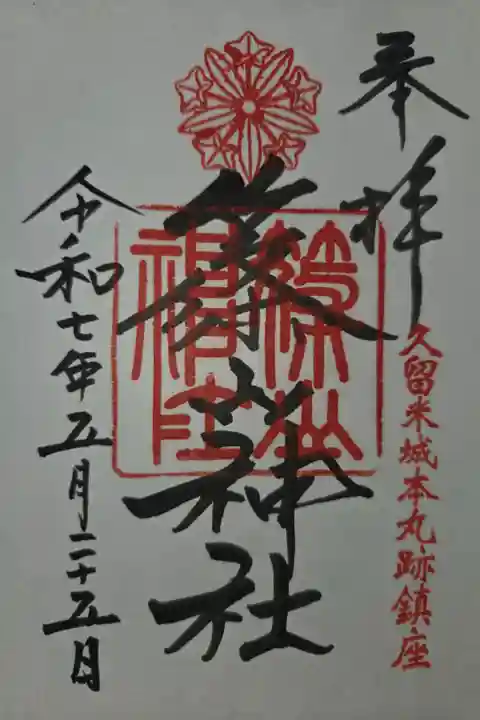 奉拝
久留米城本丸跡鎮座
篠山神社
篠山神社
令和七年五月二十五日